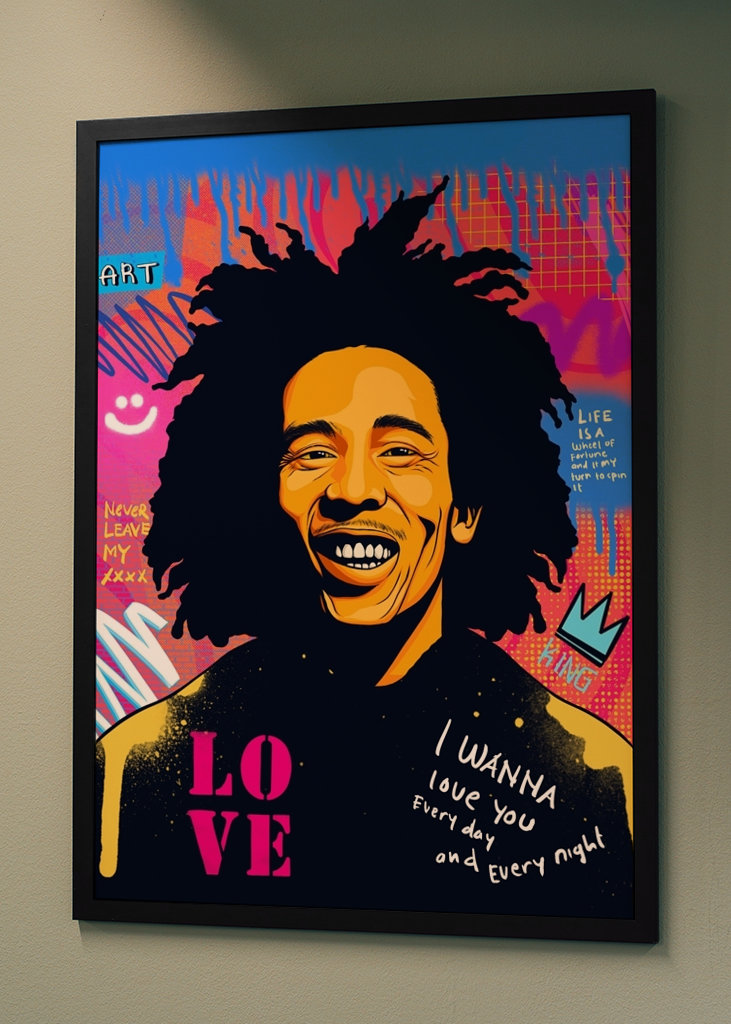 ART
LIFE
IS A
wheel of
fortune
and it my
turn to spin
it
Never
LEAVE
MY
xxxx
KING
LO
VE
I WANNA
love you
Every day
and Every night